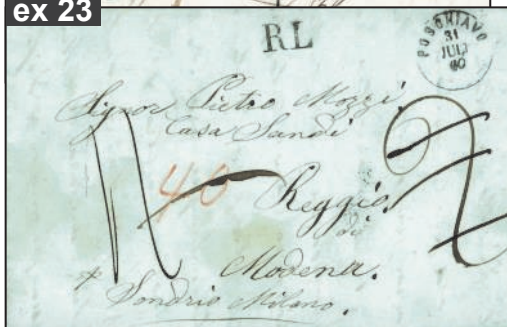 ex 23
RL
POSCHIAVO
31
JULI
60
Signor Pietro Mozzi
Casa Sandi
40
2
Reggio
di
Modena.
Sondrio Milano.